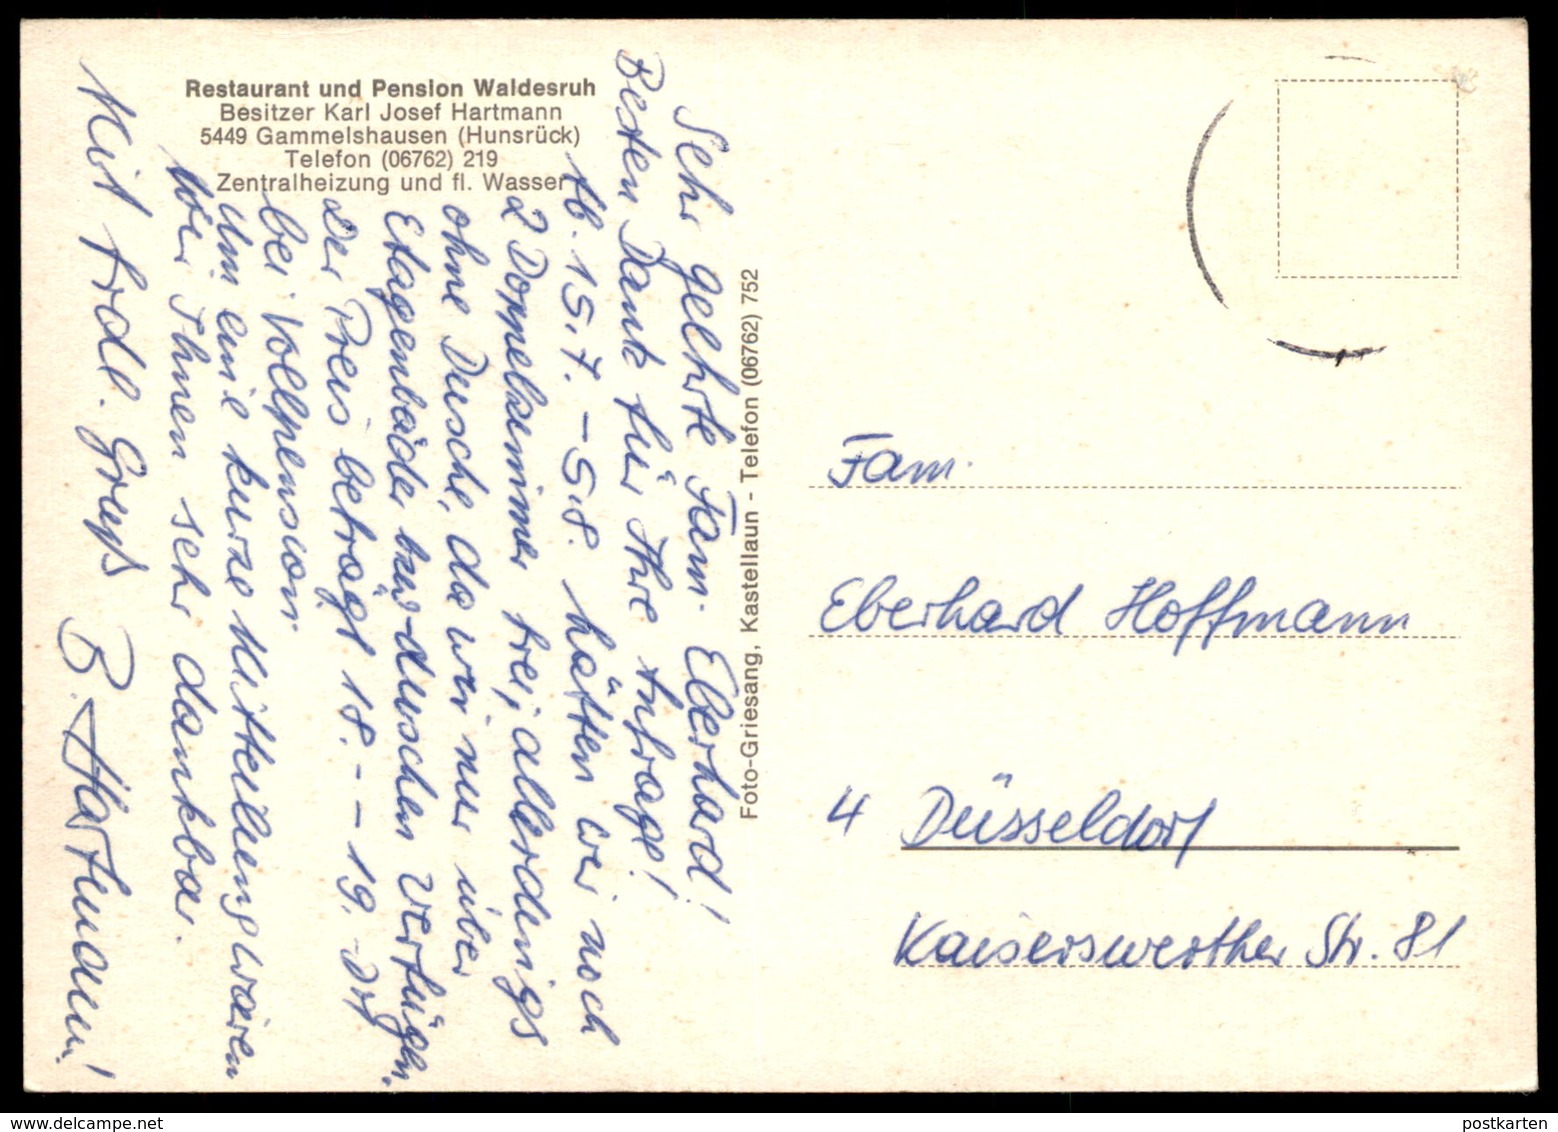 Restaurant und Pension Waldesruh
Besitzer Karl Josef Hartmann
5449 Gammelshausen (Hunsrück)
Telefon (06762) 219
Zentralheizung und fl. Wasser
Sehr geehrte Fam. Eberhard!
Besten Dank für Ihre Anfrage!
Ab. 15.7. - 5.8. hätten wir noch
2 Doppelzimmer frei, allerdings
ohne Dusche, da wir nur über
Etagenbäder bzw-duschen verfügen.
Der Preis beträgt 18.- - 19.-DM
bei Vollpension.
Um eine kurze Mitteilung wären
wir Ihnen sehr dankbar.
Mit frdl. Gruß
B. Hartmann!
Foto-Griesang, Kastellaun - Telefon (06762) 752
Fam.
Eberhard Hoffmann
4 Düsseldorf
Kaiserswerther Str. 81
postkarten